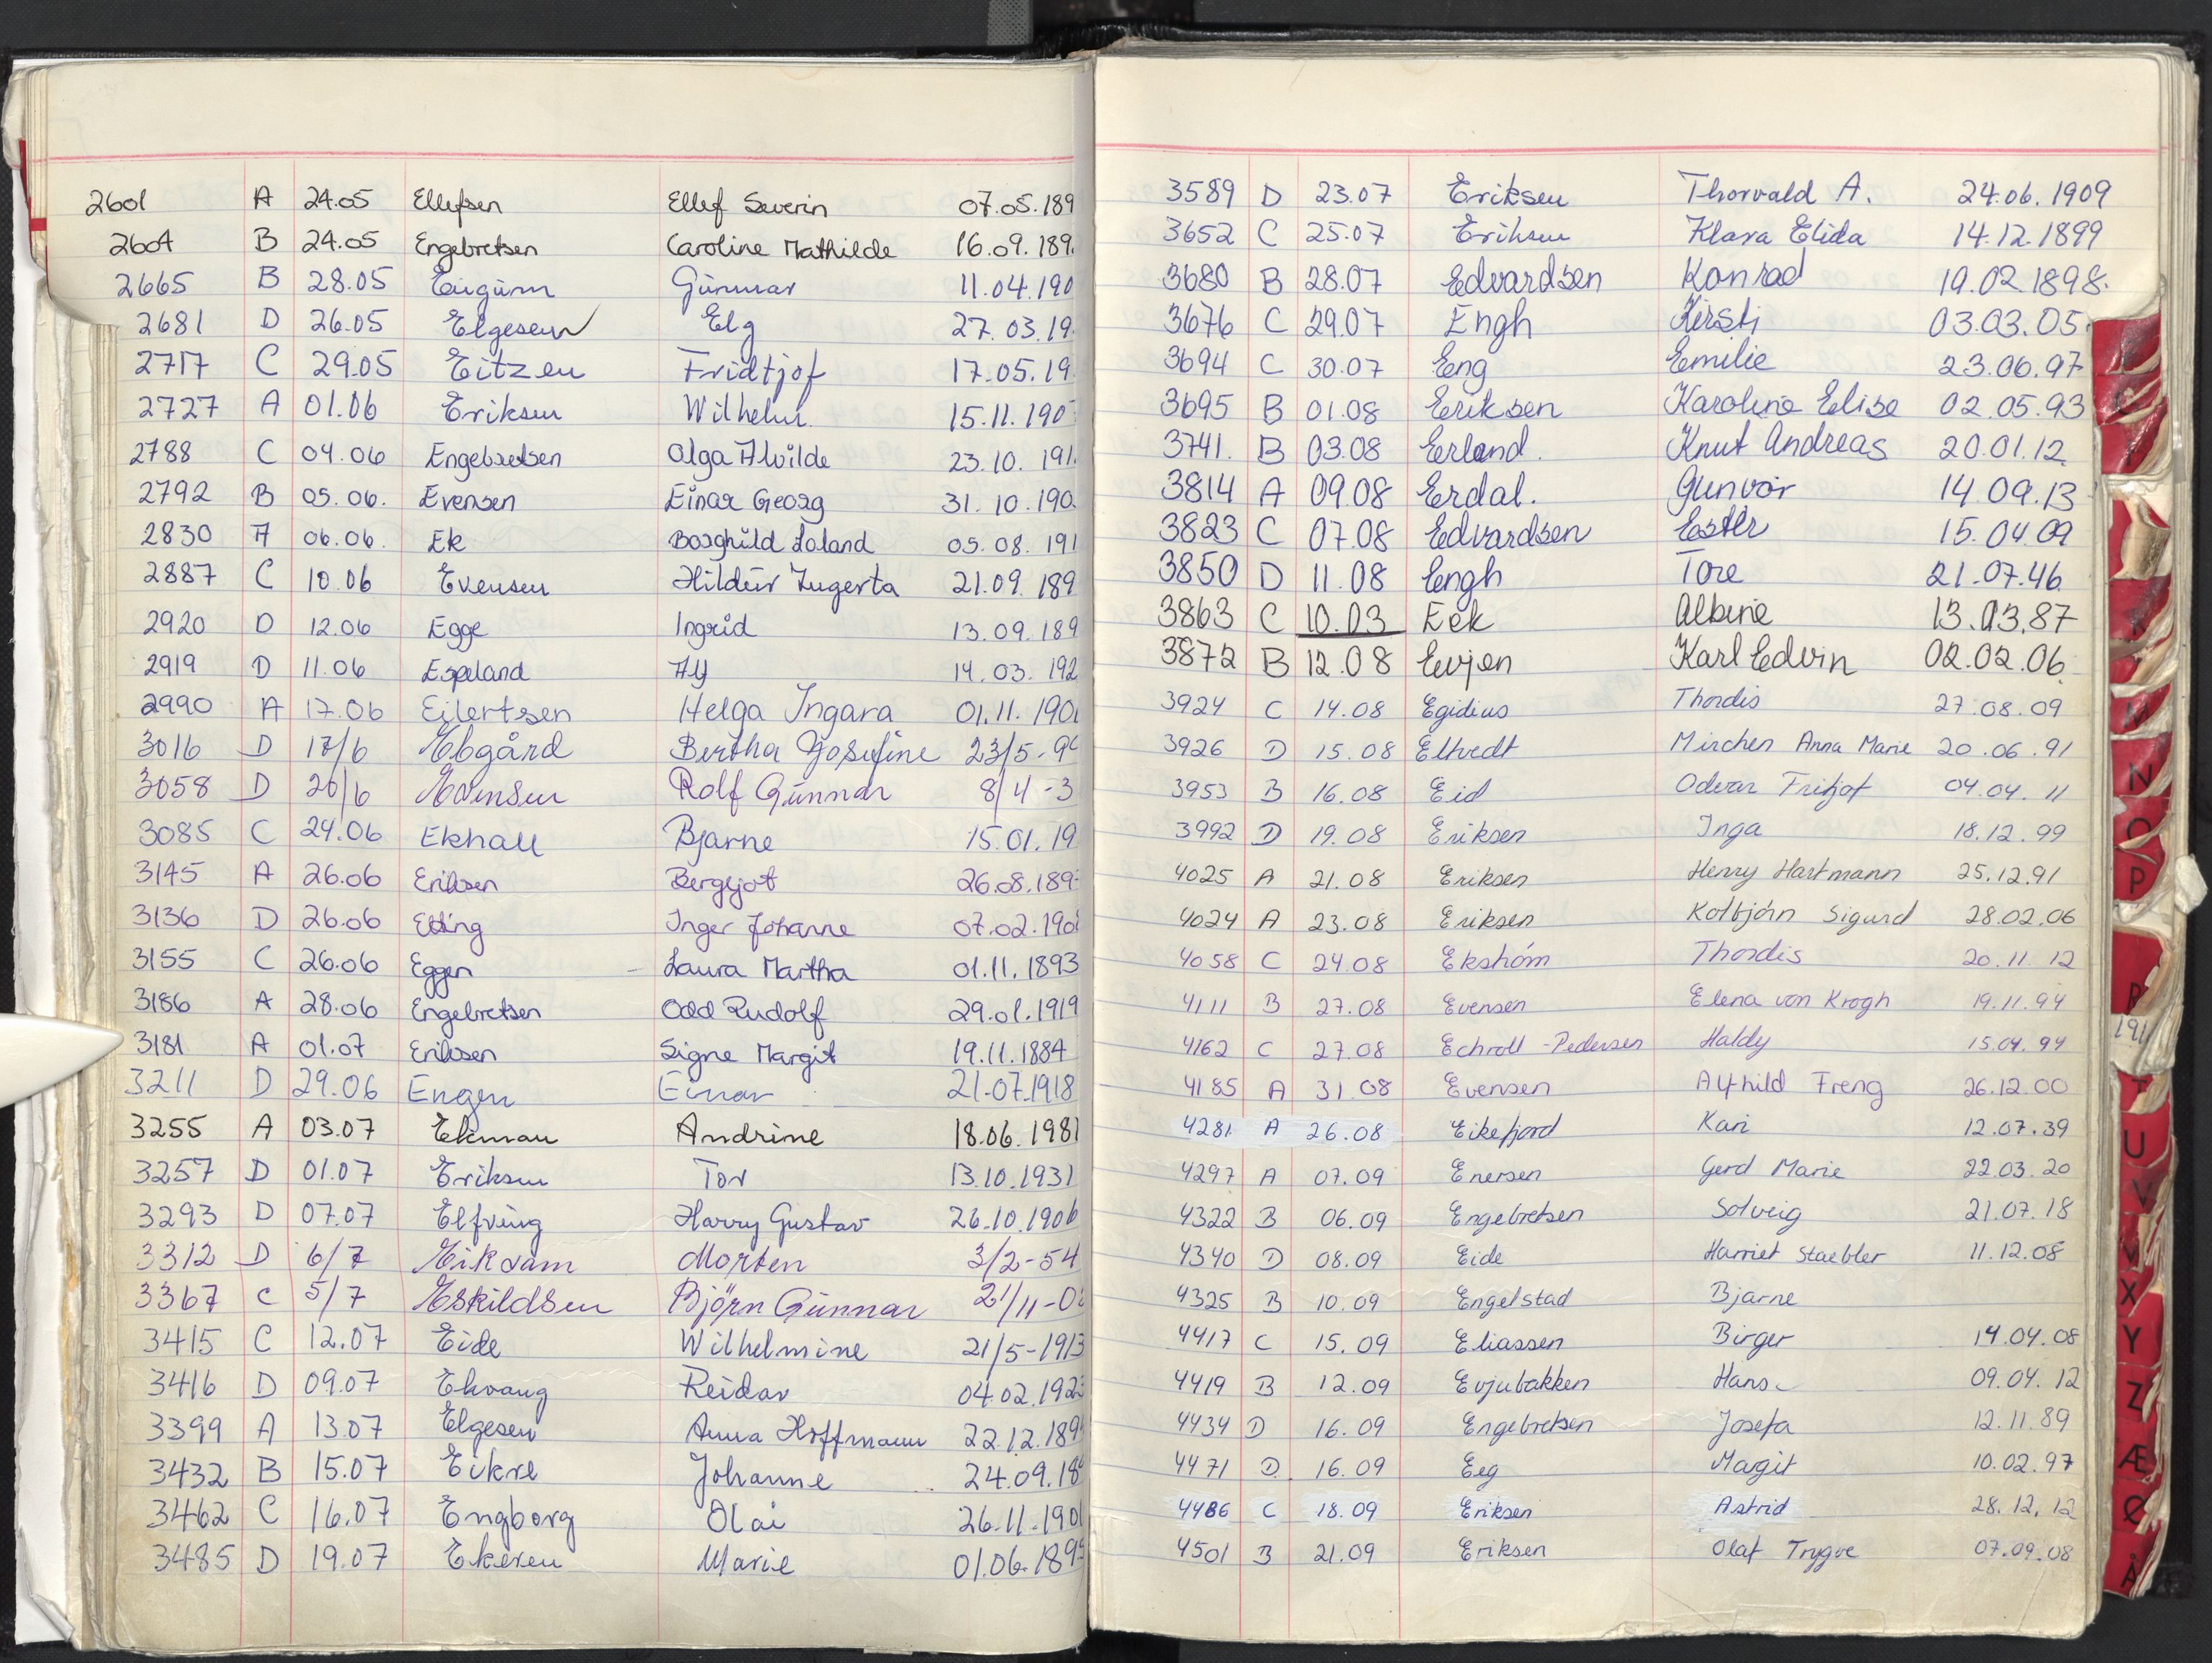 2601 A 24.05 Ellefsen Ellef Severin 07.05.189
2604 B 24.05 Engebretsen Caroline Mathilde 16.09.189
2665 B 28.05 Gunnar 11.04.190
2681 D 26.05 Elgesen Elg 27.03.19
2717 C 29.05 Eitzen Fridtjof 17.05.19
2727 A 01.06 Eriksen Wilhelm 15.11.190
2788 C 04.06 Engebretsen Olga Alvilde 23.10.191
2792 B 05.06. Evensen Einar Georg 31.10.190
2830 A 06.06. Ek Borghild Loland 05.08.191
2887 C 10.06 Evensen Hildur Ingerta 21.09.189
2920 D 12.06 Egge Ingrid 13.09.189
2919 D 11.06 Espeland Alf 14.03.192
2990 A 17.06 Eilertsen Helga Ingara 01.11.190
3016 D 17/6 Ebgård Bertha Josefine 23/5-9
3058 D 20/6 Rolf Gunnar 8/4-3
3085 C 24.06 Ekhall Bjarne 15.01.19
3145 A 26.06 Eriksen Bergljot 26.08.189
3136 D 26.06 Etting Inger Johanne 07.02.190
3155 C 26.06 Eggen - Laura Martha 01.11.1893
3186 A 28.06 Engebretsen Odd Rudolf 29.01.1919
3181 A 01.07 Eriksen Signe Margit 19.11.1884
3211 D 29.06 Engen Einar 21.07.1918
3255 A 03.07 Ekman Andrine 18.06.1981
3257 D 01.07 Eriksen Tor 13.10.1931
3293 D 07.07 Elfving Harry Gustav 26.10.1906
3312 D 6/7 Eikvam Morten 3/2-54
3367 C 5/7 Eskildsen Björn Gunnar 21/11-0
3415 C 12.07 Eide Wilhelmine 21/5-1913
3416 D 09.07 Ekvang Reidar 04.02.192
3399 A 13.07 Elgesen Anna Hoffmann 22.12.189
3432 B 15.07 Eikre Johanne 24.09.18
3462 C 16.07 Engborg Olai 26.11.190
3485 D 19.07 Ekeren Marie 01.06.189
3589 D 23.07 Eriksen Thorvald A. 24.06.1909
3652 C 25.07 Eriksen Klara Elida 14.12.1899
3680 B 28.07 Edvardsen Konrad 19.02.1898.
3676 C 29.07 Engh Kirsti 03.03.05
3694 C 30.07 Eng Emilie 23.06.97
3695 B 01.08 Eriksen Karoline Elise 02.05.93
3741. B 03.08 Erland. Knut Andreas 20.01.12
3814 A 09.08 Erdal. Gunvor 14.09.13
3823 C 07.08 Edvardsen Ester 15.04.09
3850 D 11.08 Engh Tore 21.07.46
3863 C 10.03 Eek Albine 13.03.87
3872 B 12.08 Evjen Karl Edvin 02.02.06
3924 C 14.08 Egidius Thordis 27.08.09
3926 D 15.08 Eltvedt Mirchen Anna Marie 20.06.91
3953 B 16.08 Eid Odvar Fritjof 04.04.11
3992 D 19.08 Eriksen Inga 18.12.99
4025 A 21.08 Eriksen Henry Hartmann 25.12.91
4024 A 23.08 Eriksen Kolbjørn Sigurd 28.02.06
4058 C 24.08 Ekshóm Thordis 20.11.12
4111 B 27.08 Evensen Elena von Krogh 19.11.94
4162 C 27.08 Echroll-Pedersen Haldy 15.04.94
4185 A 31.08 Evensen Alfhild Freng 26.12.00
4281 A 26.08 Eikefjord Kari 12.07.39
4297 A 07.09 Enersen Gerd Marie 22.03.20
4322 B 06.09 Engebretsen Solveig 21.07.18
4340 D 08.09 Eide Harriet Staebler 11.12.08
4325 B 10.09 Engelstad Bjarne
4417 C 15.09 Eliassen Birger 14.04.08
4419 B 12.09 Evjubakken Hans 09.04.12
4434 D 16.09 Engebretsen Josefa 12.11.89
4471 D 16.09 Eeg Margit 10.02.97
4486 C 18.09 Eriksen Astrid 28.12.12
4501 B 21.09 Eriksen Olaf Trygve 07.09.08
M
N
O
P
R
U
V
X
Y
Z
Æ
Ø
Å